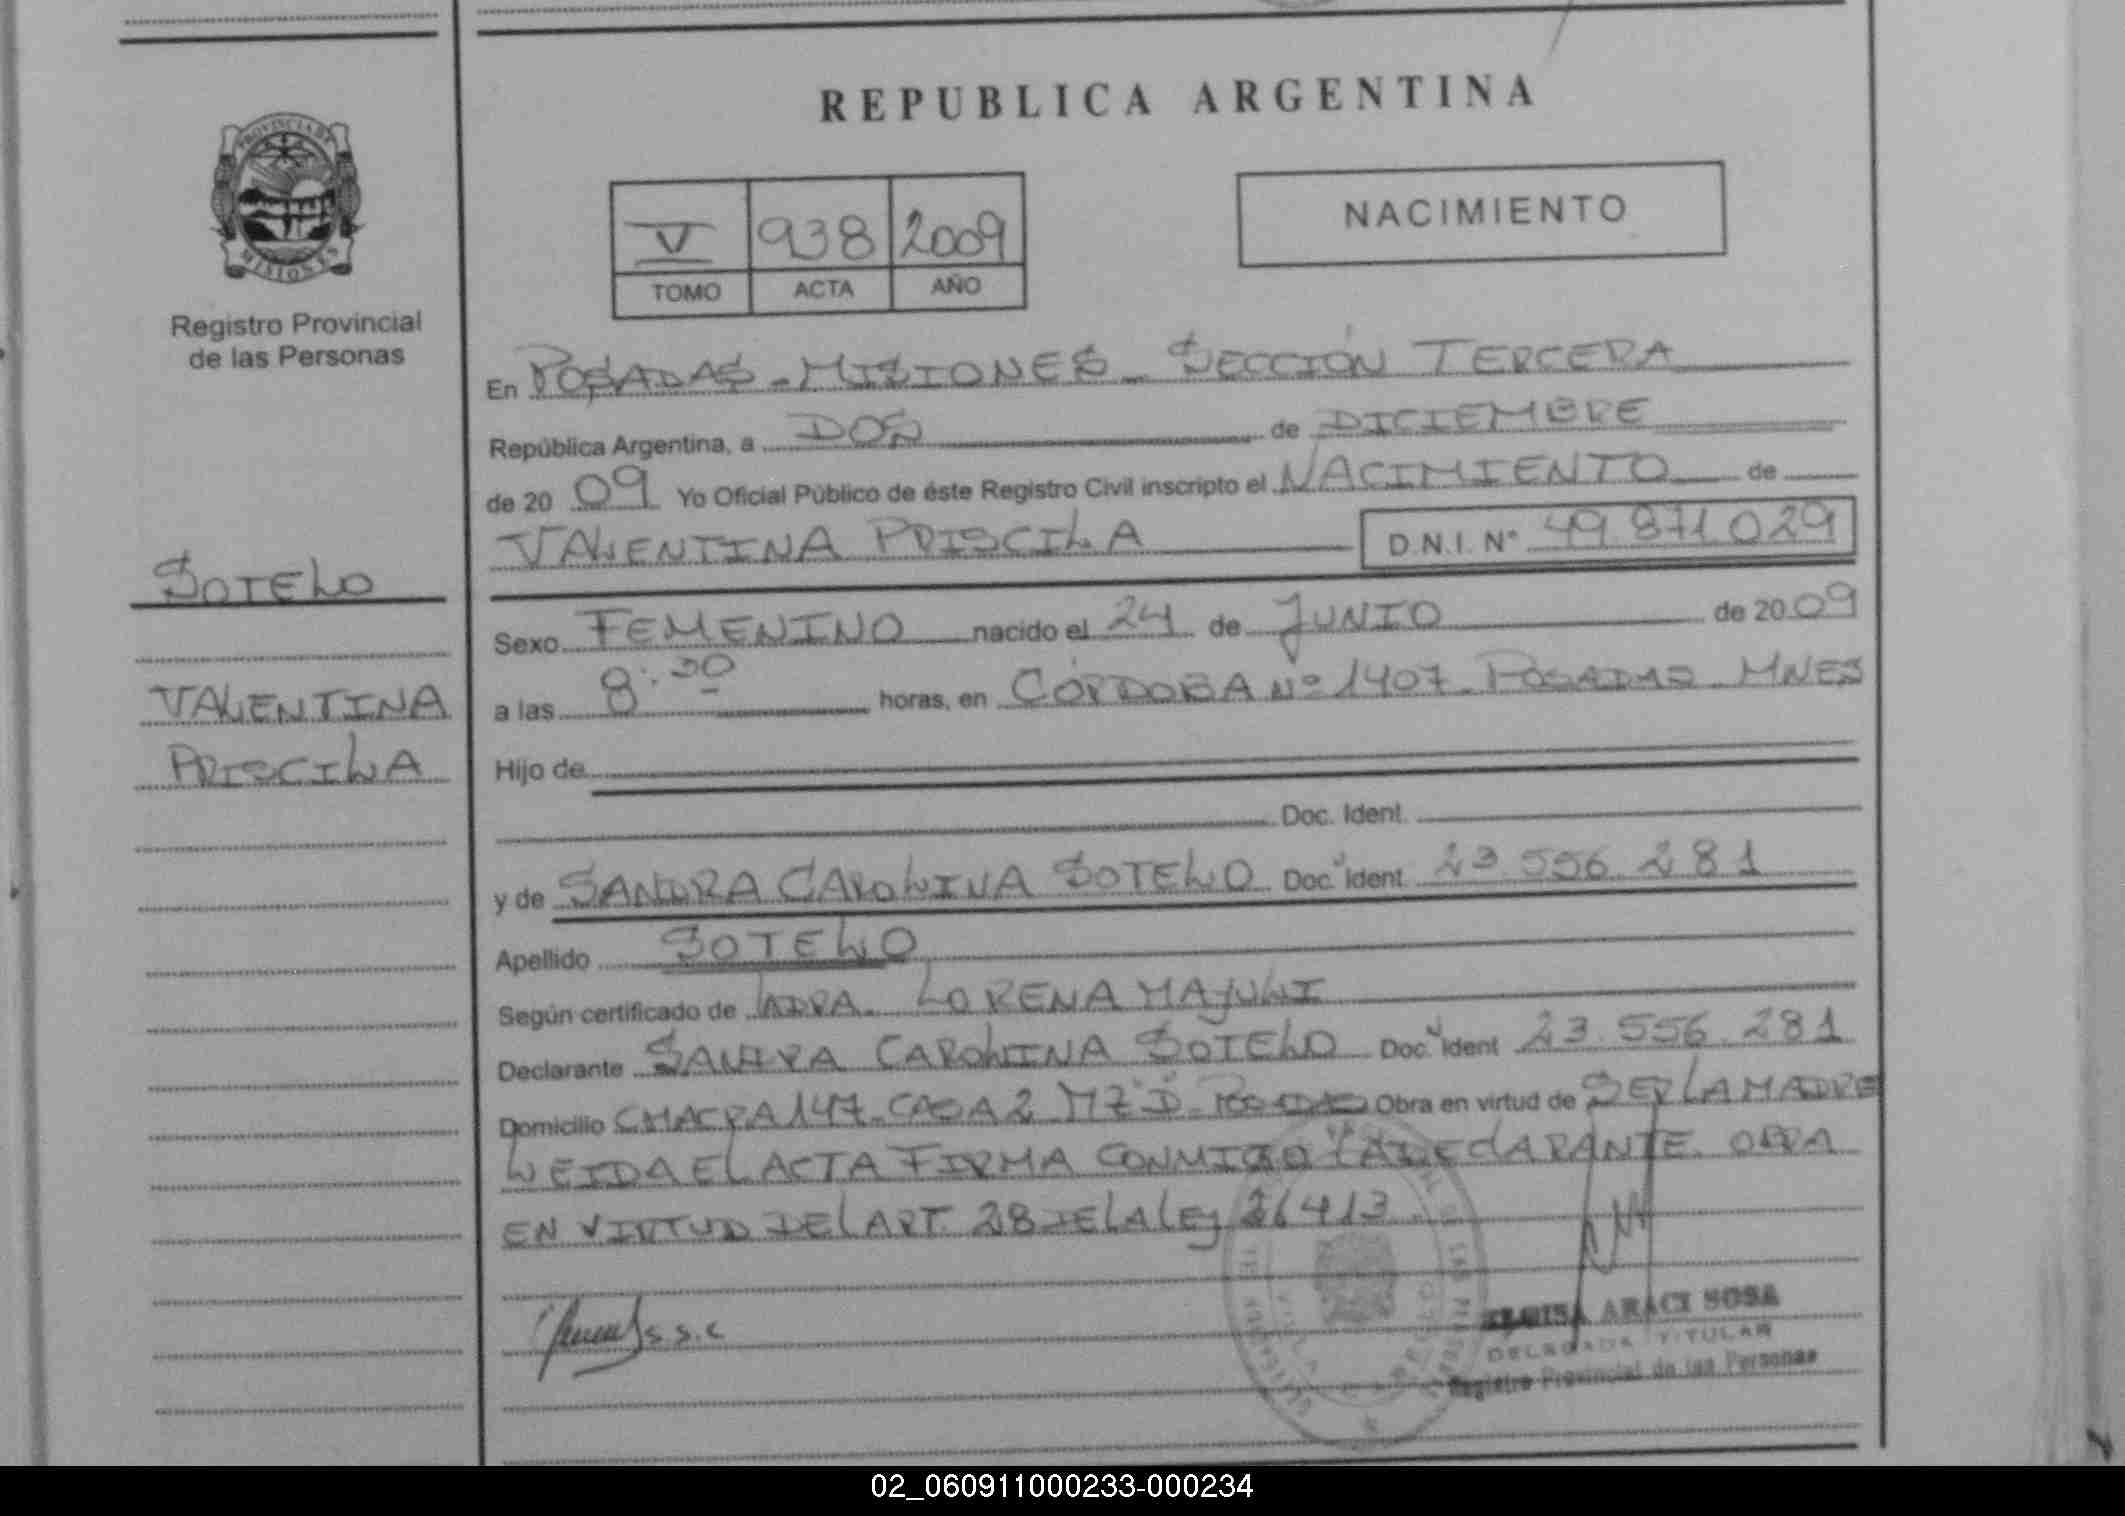 REPUBLICA ARGENTINA
PROVINCIA DE
MISIONES
Registro Provincial
de las Personas
V 938 2009
TOMO ACTA AÑO
NACIMIENTO
En POSADAS - MISIONES - SECCIÓN TERCERA
República Argentina, a DOS de DICIEMBRE
de 2009 Yo Oficial Público de éste Registro Civil inscripto el NACIMIENTO de
VALENTINA PRISCILA D.N.I. N° 49.871.029
SOTELO
VALENTINA
PRISCILA
Sexo FEMENINO nacido el 24 de JUNIO de 2009
a las 8:30 horas, en CÓRDOBA Nº 1407 - POSADAS - MNES
Hijo de
Doc. Ident.
y de SANDRA CAROLINA SOTELO Doc. Ident. 23.556.281
Apellido SOTELO
Según certificado de LORENA MAJULI
Declarante SANDRA CAROLINA SOTELO Doc. Ident 23.556.281
Domicilio CHACRA 147 - CASA 2 MZ D - POSADAS Obra en virtud de SER LA MADRE
LEIDA EL ACTA FIRMA CONMIGO LA DECLARANTE. OBRA
EN VIRTUD DEL ART. 28 DE LA LEY 26413
S.S.C
ARACI SOSA
DELEGADA TITULAR
Registro Provincial de las Personas
02_060911000233-000234